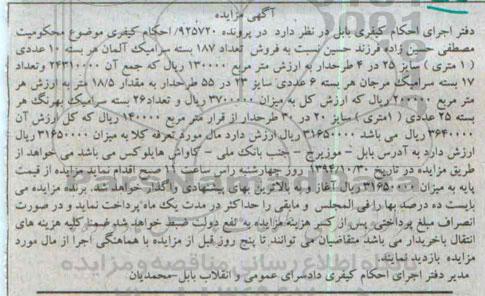 آگهی مزایده
دفتر اجرای احکام کیفری بابل در نظر دارد در پرونده ۹۲۵۷۲۰/ احکام کیفری موضوع محکومیت
مصطفی حسین زاده فرزند حسین نسبت به فروش تعداد ۱۸۷ بسته سرامیک آلمان هر بسته ۱۰ عددی
(۱ متری) سایز ۲۵ در ۴ طرحدار به ارزش متر مربع ۱۳۰۰۰۰ ریال که جمع آن ۲۴۳۱۰۰۰۰ وتعداد
۱۷ بسته سرامیک مرجان هر بسته ۶ عددی سایز ۲۳ در ۵۵ طرحدار به مقدار ۱۸/۵ متر به ارزش هر
متر مربع ۲۰۰۰۰۰ ریال که ارزش کل به میزان ۳۷۰۰۰۰۰ ریال و تعداد۲۶ بسته سرامیک بهرنگ هر
بسته ۲۵ عددی (۱متری) سایز ۲۰ در ۳۰ طرحدار از قرار متر مربع ۱۴۰۰۰۰ ریال که کل ارزش آن
۳۶۴۰۰۰۰ ریال می باشد ۳۱۶۵۰۰۰۰ ریال ارزش دارد مال مورد تعرفه کلا به میزان ۳۱۶۵۰۰۰۰ ریال
ارزش دارد به آدرس بابل - موزیرج - جنب بانک ملی - کاواش هایلوکس می باشد می خواهد از
طریق مزایده در تاریخ ۱۳۹۲/۱۰/۳۰ روز چهارشنبه راس ساعت ۱۱ صبح اقدام نماید مزایده از قیمت
پایه به میزان ۳۱۶۵۰۰۰۰ ریال آغاز و به بالاترین بهای پیشنهادی واگذار خواهد شد. برنده مزایده می
بایست ده درصد بها را فی المجلس و مابقی را حداکثر در مدت یک ماه پرداخت نماید و در صورت
انصراف مبلغ پرداختی پس از کسر هزینه مزایده به نفع دولت ضبط خواهد شد ضمنا کلیه هزینه های
انتقال باخریدار می باشد متقاضیان می توانند تا پنج روز قبل از مزایده با هماهنگی اجرا از مال مورد
مزایده بازدید نمایند.
مدیر دفتر اجرای احکام کیفری دادسرای عمومی و انقلاب بابل-محمدیان